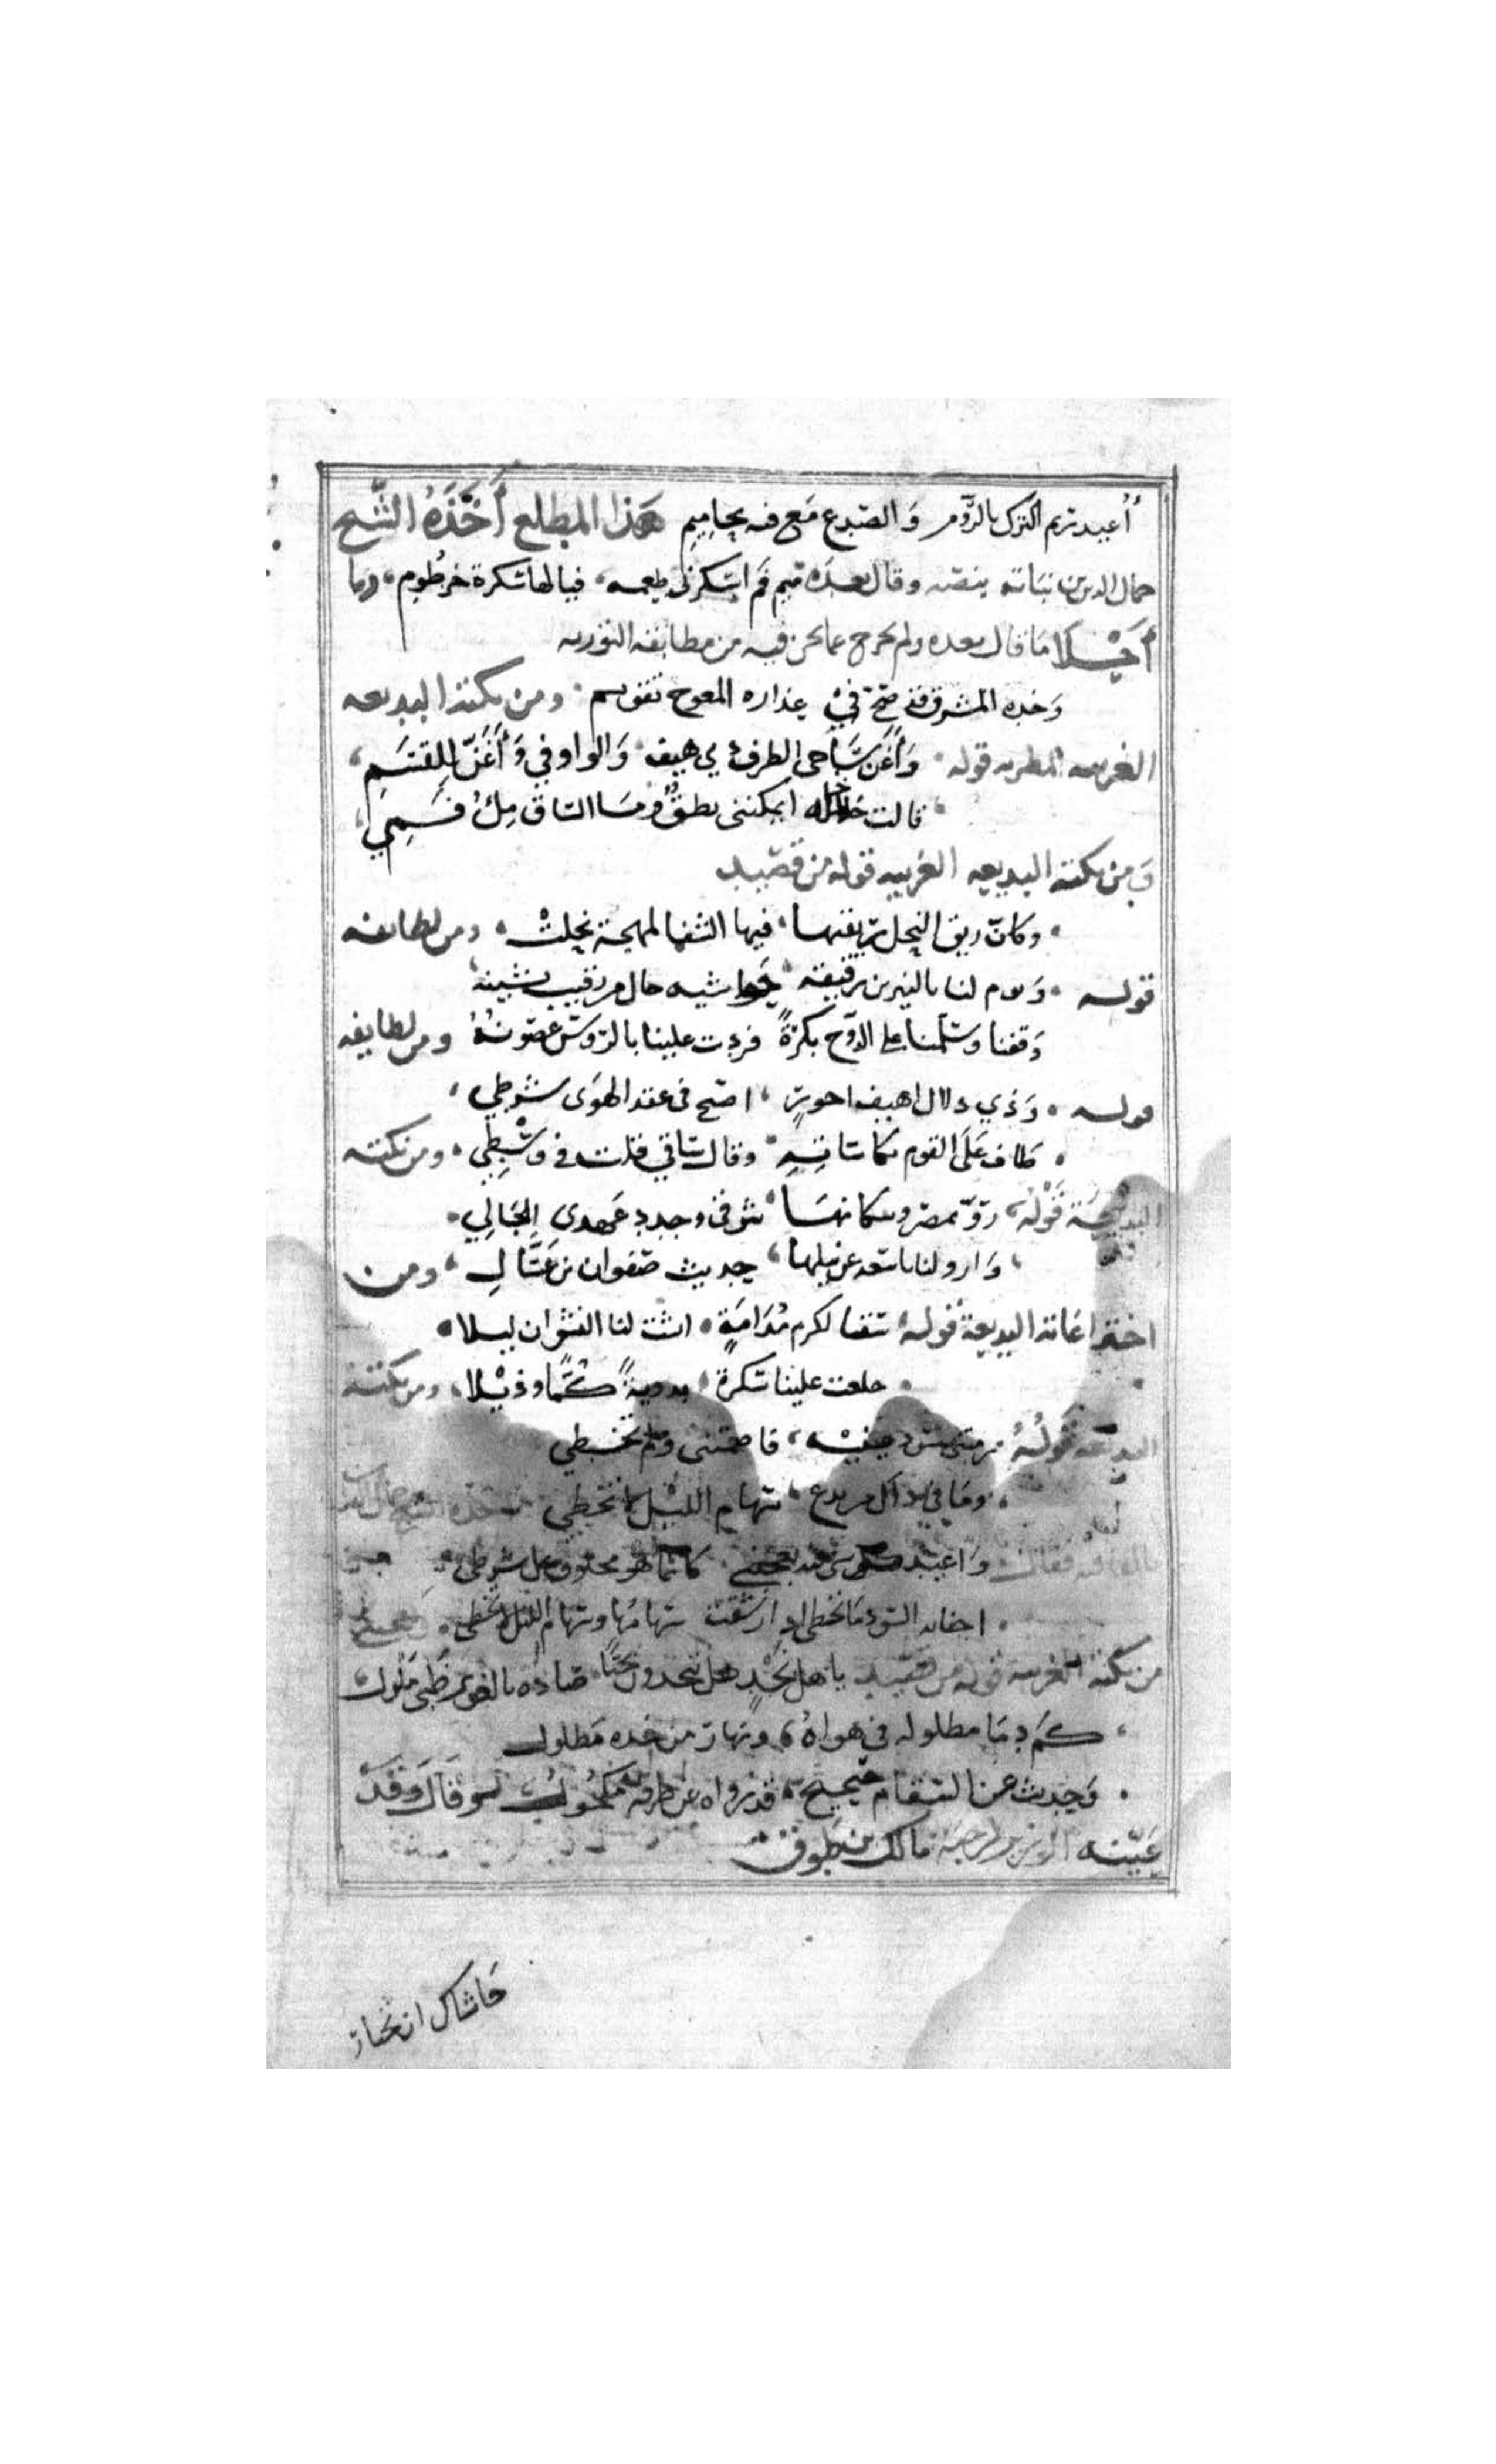 أعيد ريم الترك بالروم والصدغ مع فمه بحاميم هذا المطلع أخذه الشيخ
جمال الدين بن نباته بنصه وقال بعده ميم فم اسكرني طعمه فيالها سكرة خرطوم وما
أحيلا ما قال بعده ولم يخرج عما نحن فيه من مطابقة التورية
وخده المشرق قد صح في عذاره المعوج تقويم ومن نكته البديعه
الغريبه المطربه قوله وأغن ساجى الطرف لي هيف والواو في وأغن للقسم
قالت خلاخله ايمكننى نطق وما الساق مل فمي
ومن نكته البديعه الغريبه قوله من قصيد
وكان ريق النحل ريقتها فيها الشفا لمهجة نحلت ومن لطائفه
قوله ويوم لنا بالنيرين رقيقة حواشيه خال من رقيب يشينه
وقفنا وسلمنا على الدوح بكرة فردت علينا بالرؤس غصونه ومن لطايفه
قوله وذي دلال اهيف احور اصبح في عقد الهوى شرطي
طاف على القوم بكاساته وقال ساقي قلت في وسطي ومن نكته
البديعة قوله روّ بمصر وسكانها شوقى وجدد عهدى الخالي
وارو لنا ياسعد عن نيلها حديث صفوان بن عسال ومن
اختراعاته البديعة قوله سقيا لكرم مدامة انشت لنا النشوان ليلا
خلعت علينا سكرة بدوية كمّا وذيلا ومن نكته
البديعه قوله رمتنى سود عينيه فاصمتنى ولم تخطي
وما في ذاك من بدع سهام الليل لا تخطي اخذه الشيخ جمال الدين
فقال واغيد كانما هو مخلوق على شرطي
اجفانه السود ما تخطى اذا رشقت سهامها وسهام الليل لا تخطى
من نكته الغريبه قوله من قصيد يا اهل نجد هل تنجدون محبّا صاده بالغوير ظبي ملول
كم دما مطلولة في هواه وبهار من خده مطلول
وحديث عن السقام صحيح قد رواه عن طرفه مكحول لو قال وقد
عيّنه مالك بن طوق
حاشاك ان تختار